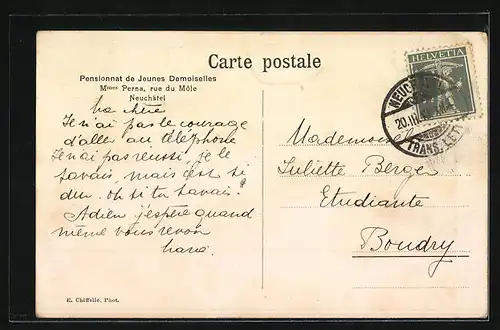 Carte postale
Pensionnat de Jeunes Demoiselles
Mmes Perna, rue du Môle
Neuchâtel
HELVETIA
Ma
Je n'ai pas le courage
d'aller au téléphone
Je n'ai pas réussi, je le
savais, mais c'est si
dur. oh si tu savais!
Adieu j'espère quand
même vous revoir
Mademoiselle
Juliette Berger
Etudiante
Boudry
E. Chiffelle, Phot.